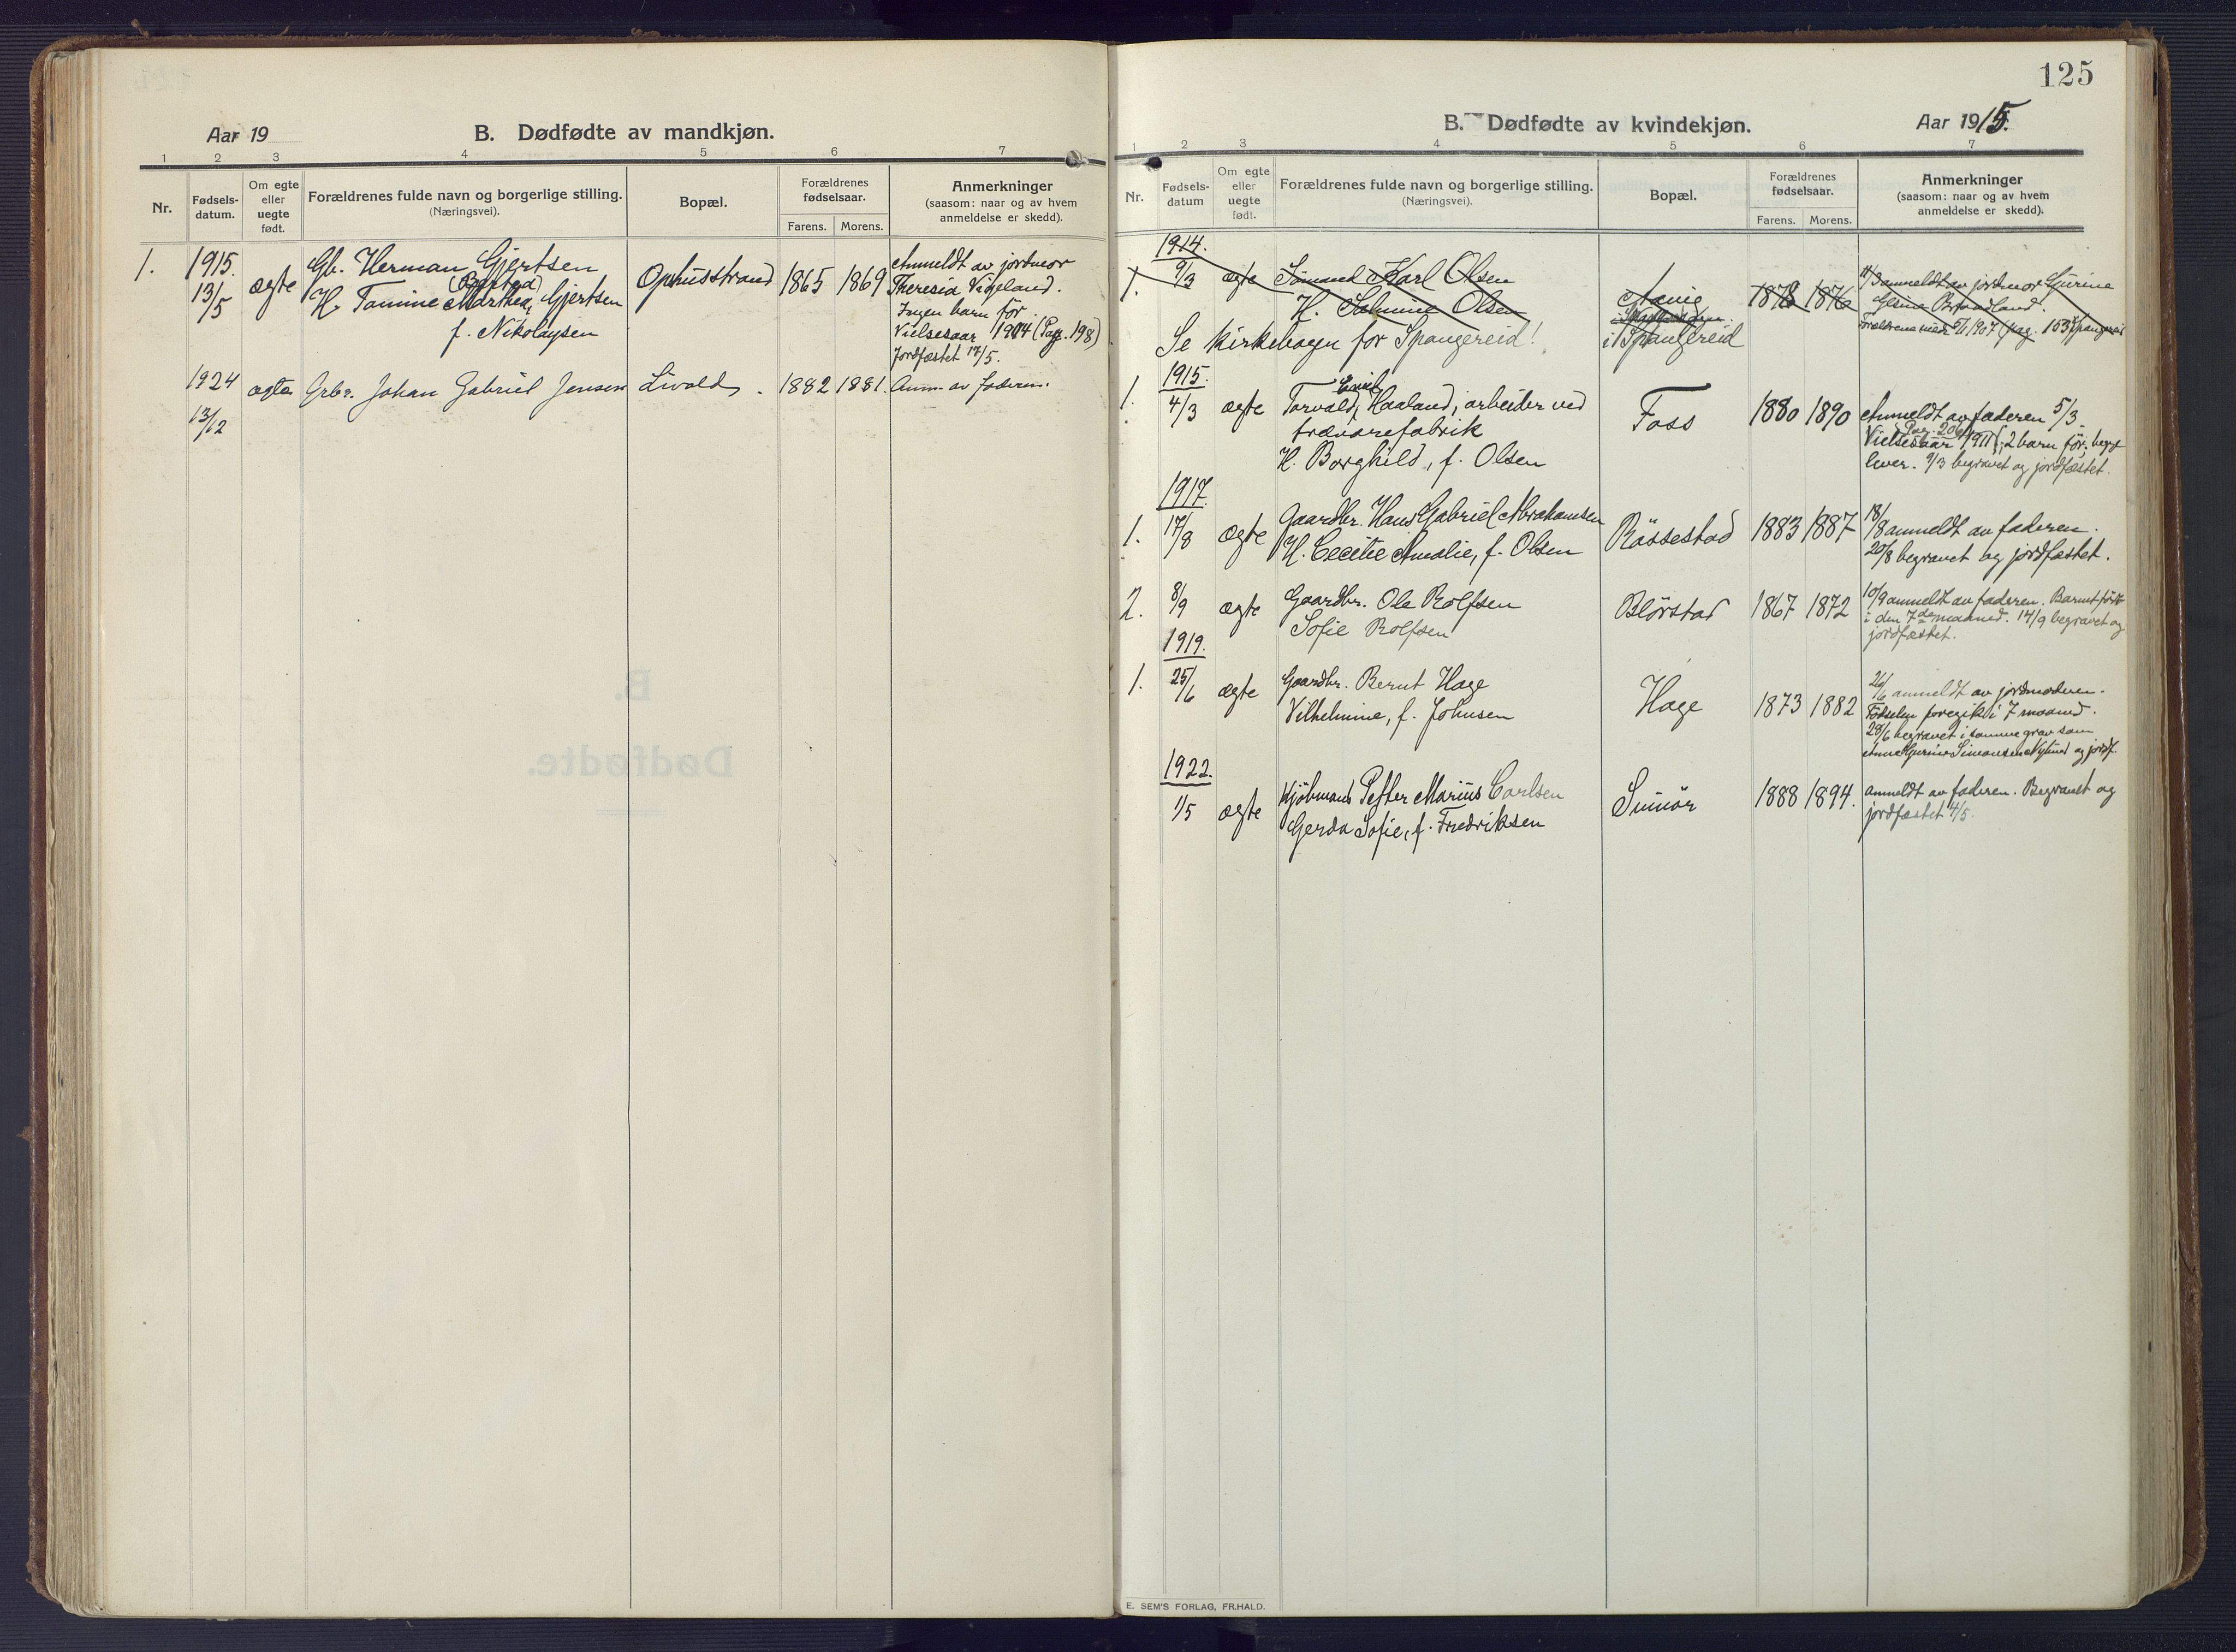 Aar 19
B. Dødfødte av mandkjøn.
1 2 3 4 5 6 7
Nr.
Fødsels-
datum.
Om egte
eller
uegte
født.
Forældrenes fulde navn og borgerlige stilling.
(Næringsvei).
Bopæl.
Forældrenes
fødselsaar.
Farens. Morens.
Anmerkninger
(saasom: naar og av hvem
anmeldelse er skedd).
1.
1915.
13/5
ægte
Gb. Herman Gjertsen
H. Tomine Marthea Gjertsen
f. Nikolaysen
Ophusstrand
1865 1869
Anmeldt av jordmor
Theresia Vigeland.
Ingen barn før.
Vielsesaar 1904 (Pag. 198)
Jordfæstet 17/5.
1924
13/12
ægte
Grbr. Johan Gabriel Jensen
Livold
1882 1881.
Anm. av faderen.
125
B. Dødfødte av kvindekjøn.
Aar 1915.
1 2 3 4 5 6 7
Nr.
Fødsels-
datum
Om egte
eller
uegte
født.
Forældrenes fulde navn og borgerlige stilling.
(Næringsvei).
Bopæl.
Forældrenes
fødselsaar.
Farens. Morens.
Anmerkninger
(saasom: naar og av hvem
anmeldelse er skedd).
1914.
1.
9/3
ægte
Sømand Karl Olsen
H. Salmine Olsen
i Spangereid
1878 1876
11/3 anmeldt av jordmor Gurine
Se kirkebogen for Spangereid!
1915.
1.
4/3
ægte
Torvald Emil Haaland, arbeider ved
trævarefabrik
H. Borghild, f. Olsen
Foss
1880 1890
Anmeldt av faderen 5/3.
(Pag. 206)
Vielsesaar 1911; 2 barn før, begge
lever. 9/3 begravet og jordfæstet.
1917.
1.
17/8
ægte
Gaardbr. Hans Gabriel Abrahamsen
H. Cecilie Amalie, f. Olsen
Røssestad
1883 1887
18/8 anmeldt av faderen.
20/8 begravet og jordfæstet.
2.
8/9
ægte
Gaardbr. Ole Rolfsen
Sofie Rolfsen
Blørstad
1867 1872
10/9 anmeldt av faderen. Barnet født
i den 7de maaned. 14/9 begravet og
jordfæstet.
1919.
1.
25/6
ægte
Gaardbr. Bernt Hage
Vilhelmine, f. Johnsen
Hage
1873 1882
26/6 anmeldt av jordmoderen.
Fødselen foregik i 7 maaned.
28/6 begravet i samme grav som
Anne Gurine Simonsen Nylund og jordf.
1922.
1/5
ægte
Kjøbmand Petter Marius Carlsen
Gerda Sofie, f. Fredriksen
Sunnør
1888 1894.
Anmeldt av faderen. Begravet og
jordfæstet 4/5.
E. SEM'S FORLAG, FR.HALD.
B.
Dødfødte.